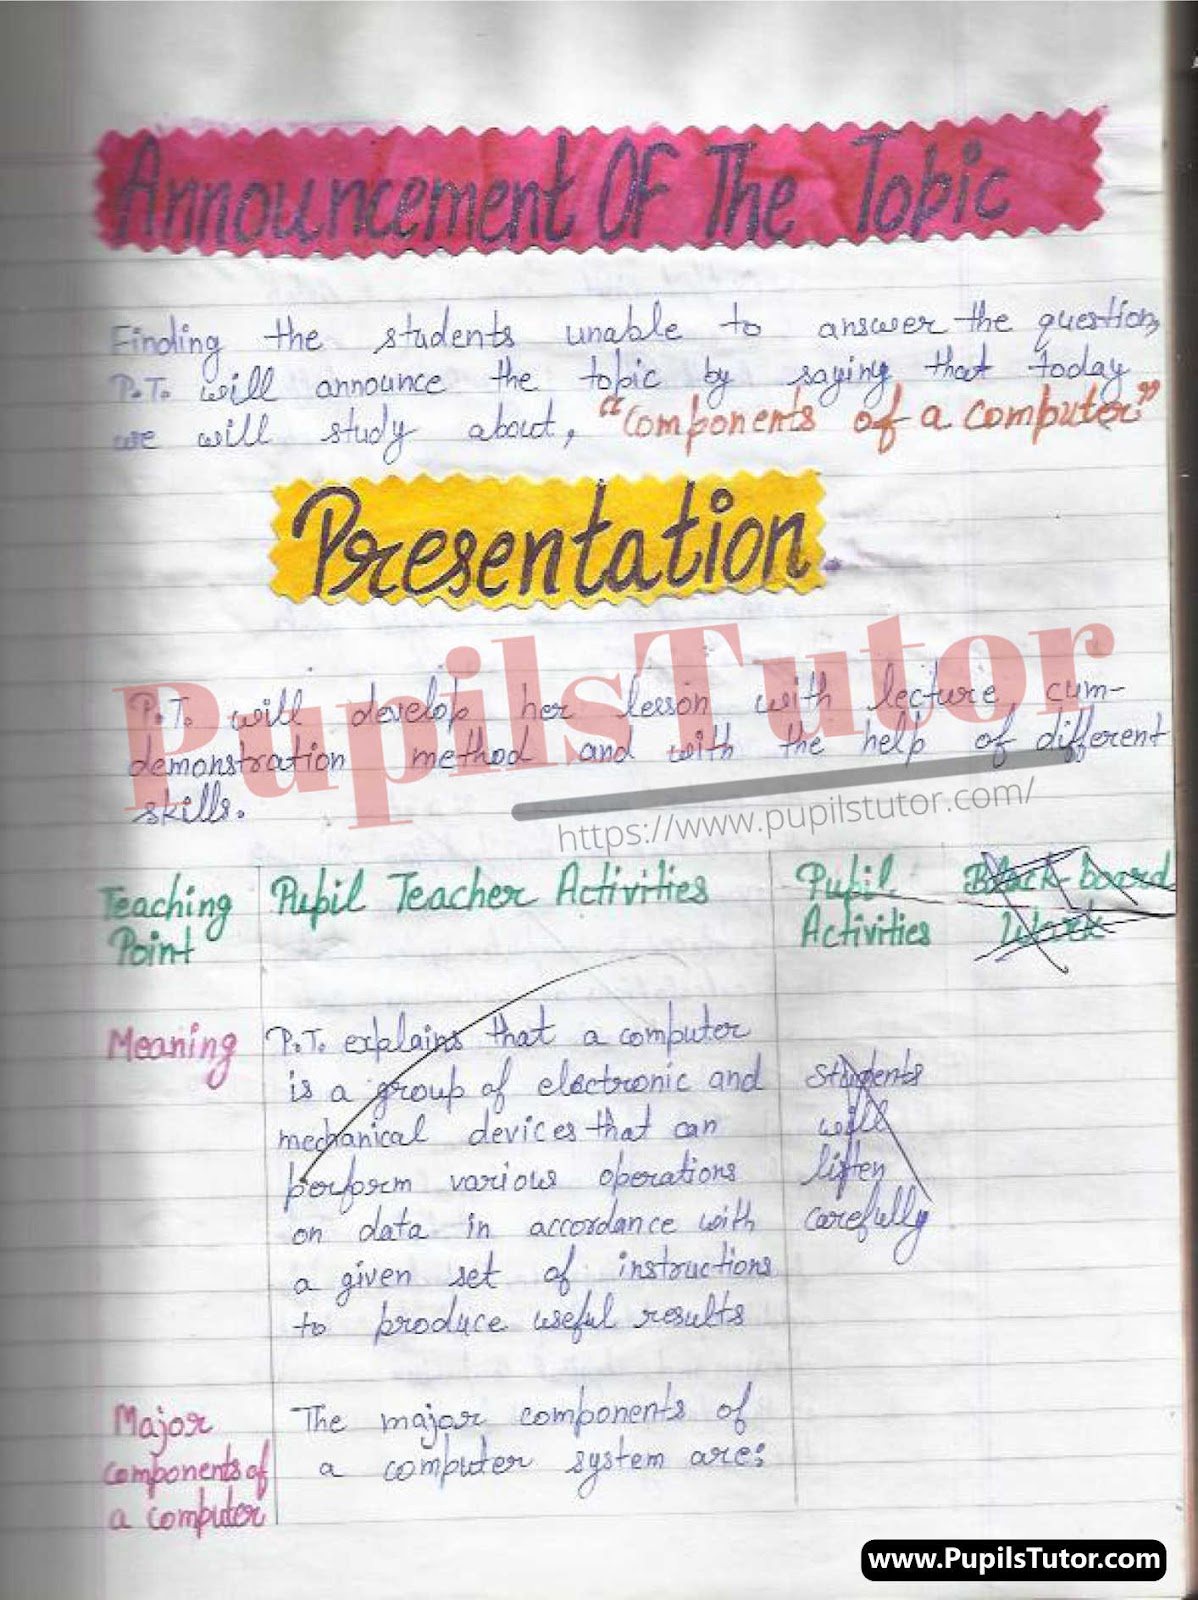 Announcement Of The Topic
Finding the students unable to answer the question,
P.T. will announce the topic by saying that today
we will study about, "Components of a computer"
Presentation
PupilsTutor
P.T. will develop her lesson with lecture cum-
demonstration method and with the help of different
skills.
https://www.pupilstutor.com/
Teaching Point
Pupil Teacher Activities
Pupil Activities
Black-board Work
Meaning
P.T. explains that a computer
is a group of electronic and
mechanical devices that can
perform various operations
on data in accordance with
a given set of instructions
to produce useful results
Students
will
listen
carefully
Major
components of
a computer
The major components of
a computer system are:
www.PupilsTutor.com